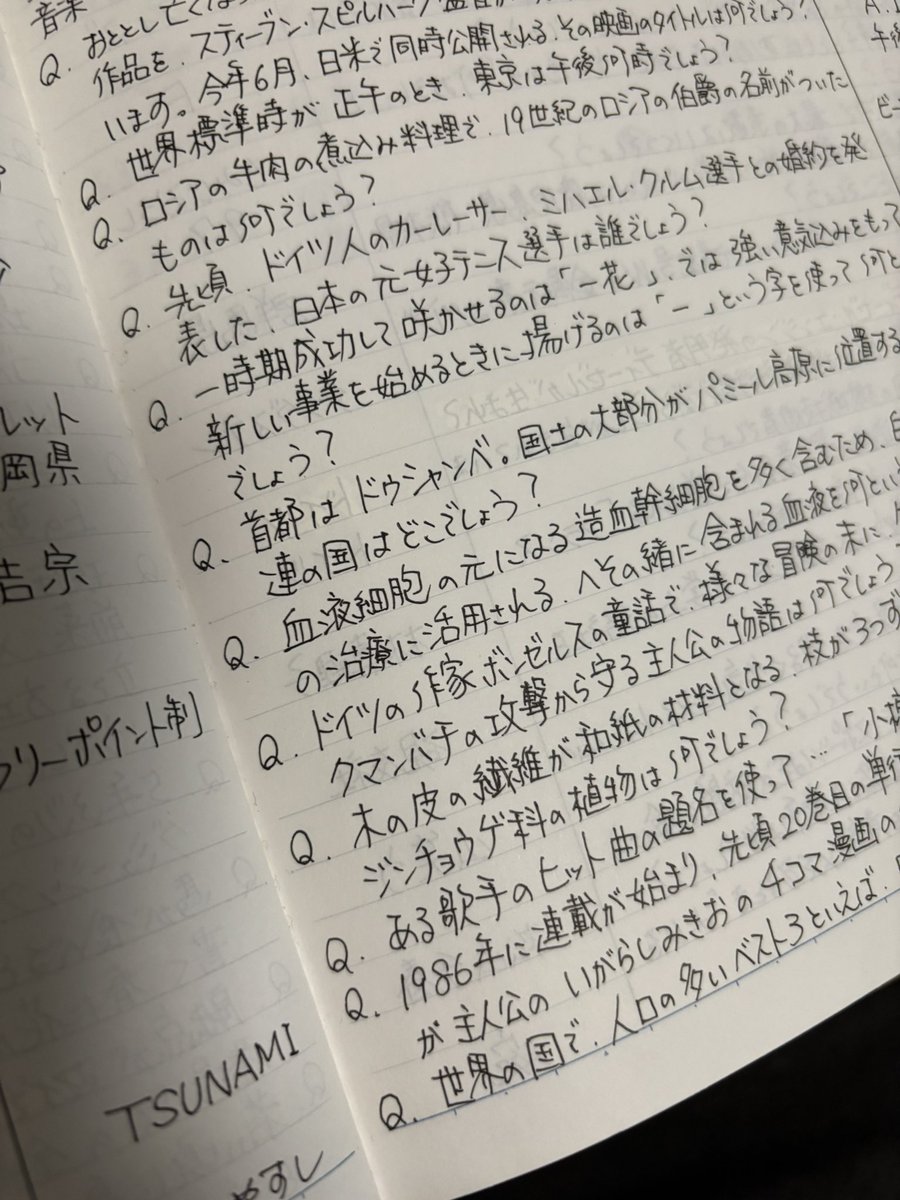 音楽
レット
岡県
吉宗
フリーポイント制
TSUNAMI
やすし
Q. おととし亡くな
作品を、スティーブン・スピルバーグ監督が
います。今年6月、日米で同時公開される、その映画のタイトルは何でしょう?
Q. 世界標準時が正午のとき、東京は午後何時でしょう?
Q. ロシアの牛肉の煮込み料理で、19世紀のロシアの伯爵の名前がついた
ものは何でしょう?
Q. 先頃、ドイツ人のカーレーサー、ミハエル・クルム選手との婚約を発
表した、日本の元女子テニス選手は誰でしょう?
Q. 一時期成功して咲かせるのは「一花」、では強い意気込みをもって
新しい事業を始めるときに揚げるのは「一」という字を使って何と
でしょう?
Q. 首都はドゥシャンベ。国土の大部分がパミール高原に位置する
連の国はどこでしょう?
Q. 血液細胞の元になる造血幹細胞を多く含むため、白
の治療に活用される、へその緒に含まれる血液を何とい
Q. ドイツの作家ボンゼルスの童話で、様々な冒険の末に、
クマンバチの攻撃から守る主人公の物語は何でしょう
Q. 木の皮の繊維が和紙の材料となる、枝が3つず
ジンチョウゲ科の植物は何でしょう?
Q. ある歌手のヒット曲の題名を使って…「小
Q. 1986年に連載が始まり、先頃20巻目の単行
が主人公のいがらしみきおの4コマ漫画の
Q. 世界の国で、人口の多いベスト3といえば、
A.
午後
ビ